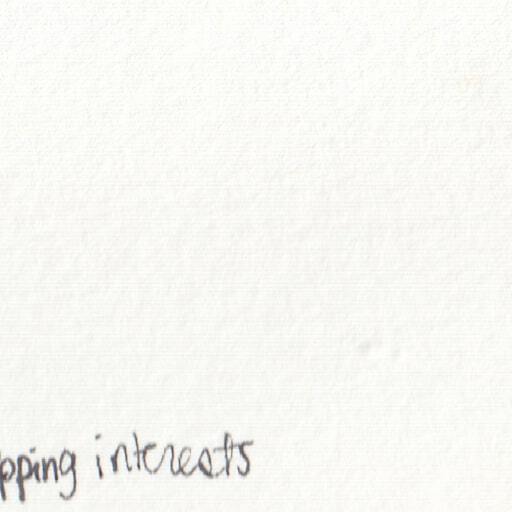 pping interests